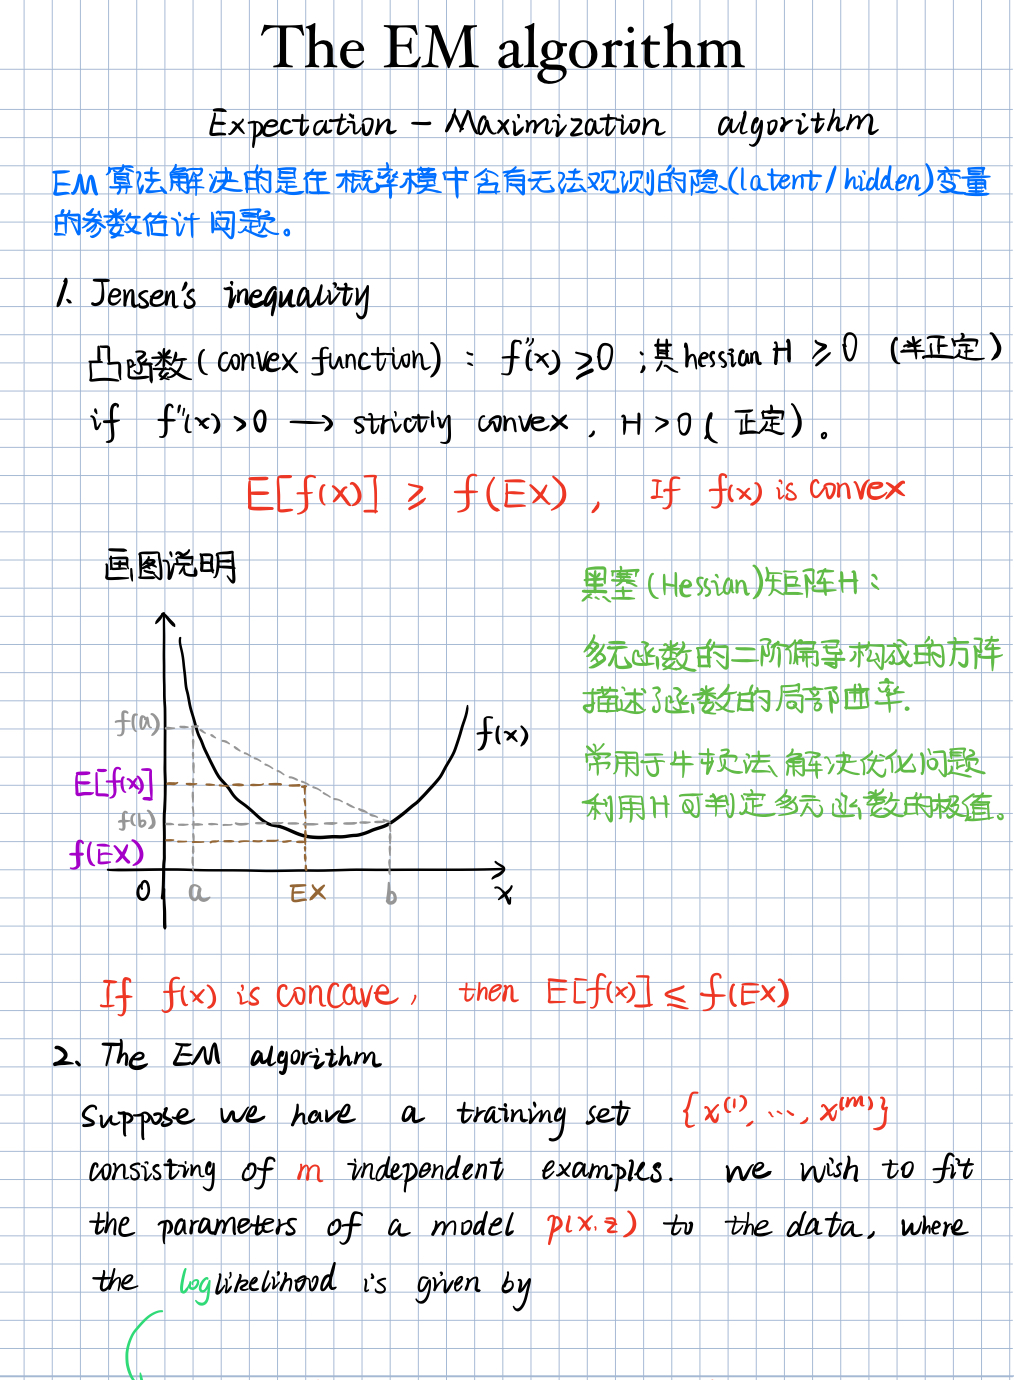 The EM algorithm
Expectation - Maximization algorithm
EM 算法解决的是在概率模中含有无法观测的隐(latent/hidden)变量
的参数估计问题。
1. Jensen's inequality
凸函数(convex function): f''(x) ≥0 ;其hessian H ≥ 0 (半正定)
if f''(x) >0 → strictly convex, H>0 (正定)。
E[f(x)] ≥ f(EX), If f(x) is convex
画图说明
f(a)
E[f(x)]
f(b)
f(EX)
f(x)
0 a EX b x
黑塞(Hessian)矩阵H:
多元函数的二阶偏导构成的方阵
描述了函数的局部曲率.
常用于牛顿法解决优化问题
利用H可判定多元函数的极值。
If f(x) is concave, then E[f(x)] ≤ f(EX)
2、The EM algorithm
Suppose we have a training set {x⁽¹⁾, ⋯, x⁽ᵐ⁾}
consisting of m independent examples. we wish to fit
the parameters of a model p(x.z) to the data, where
the loglikelihood is given by